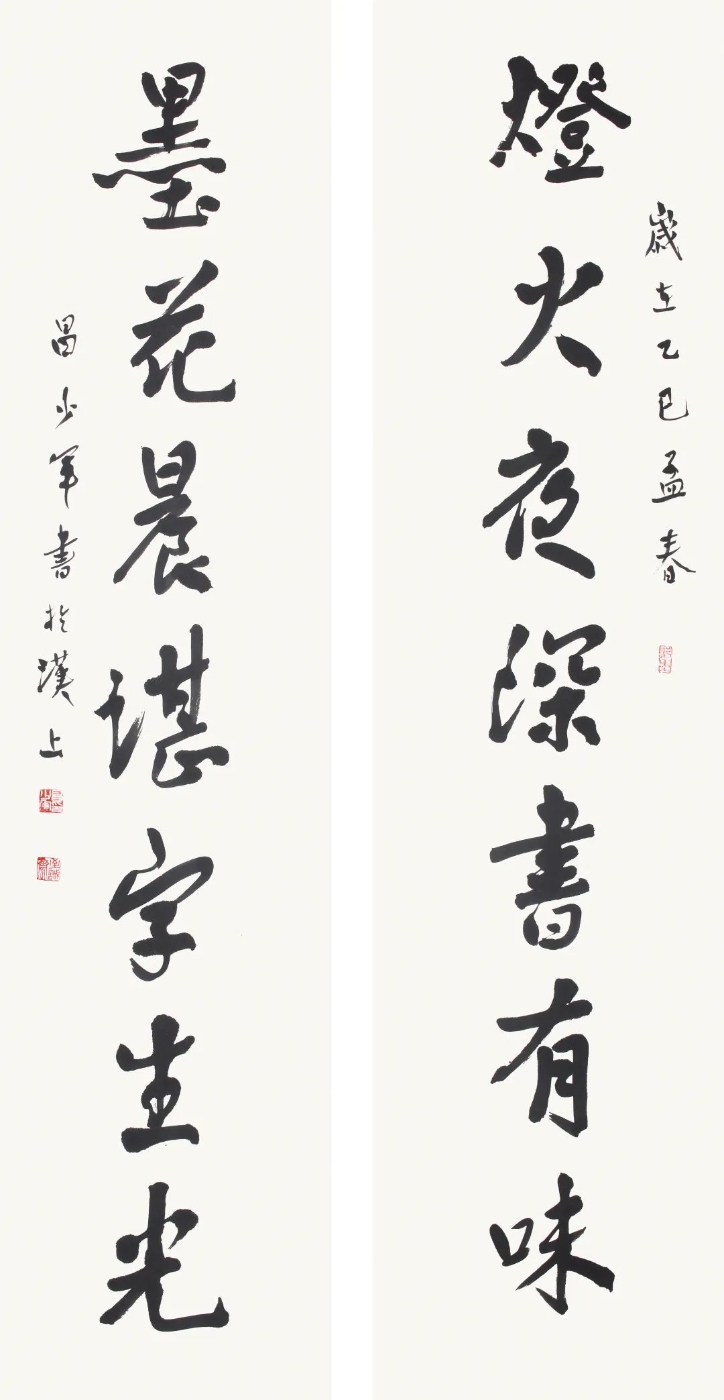 歲在乙巳孟春
燈火夜深書有味
墨花晨湛字生光
昌少軍書於漢上